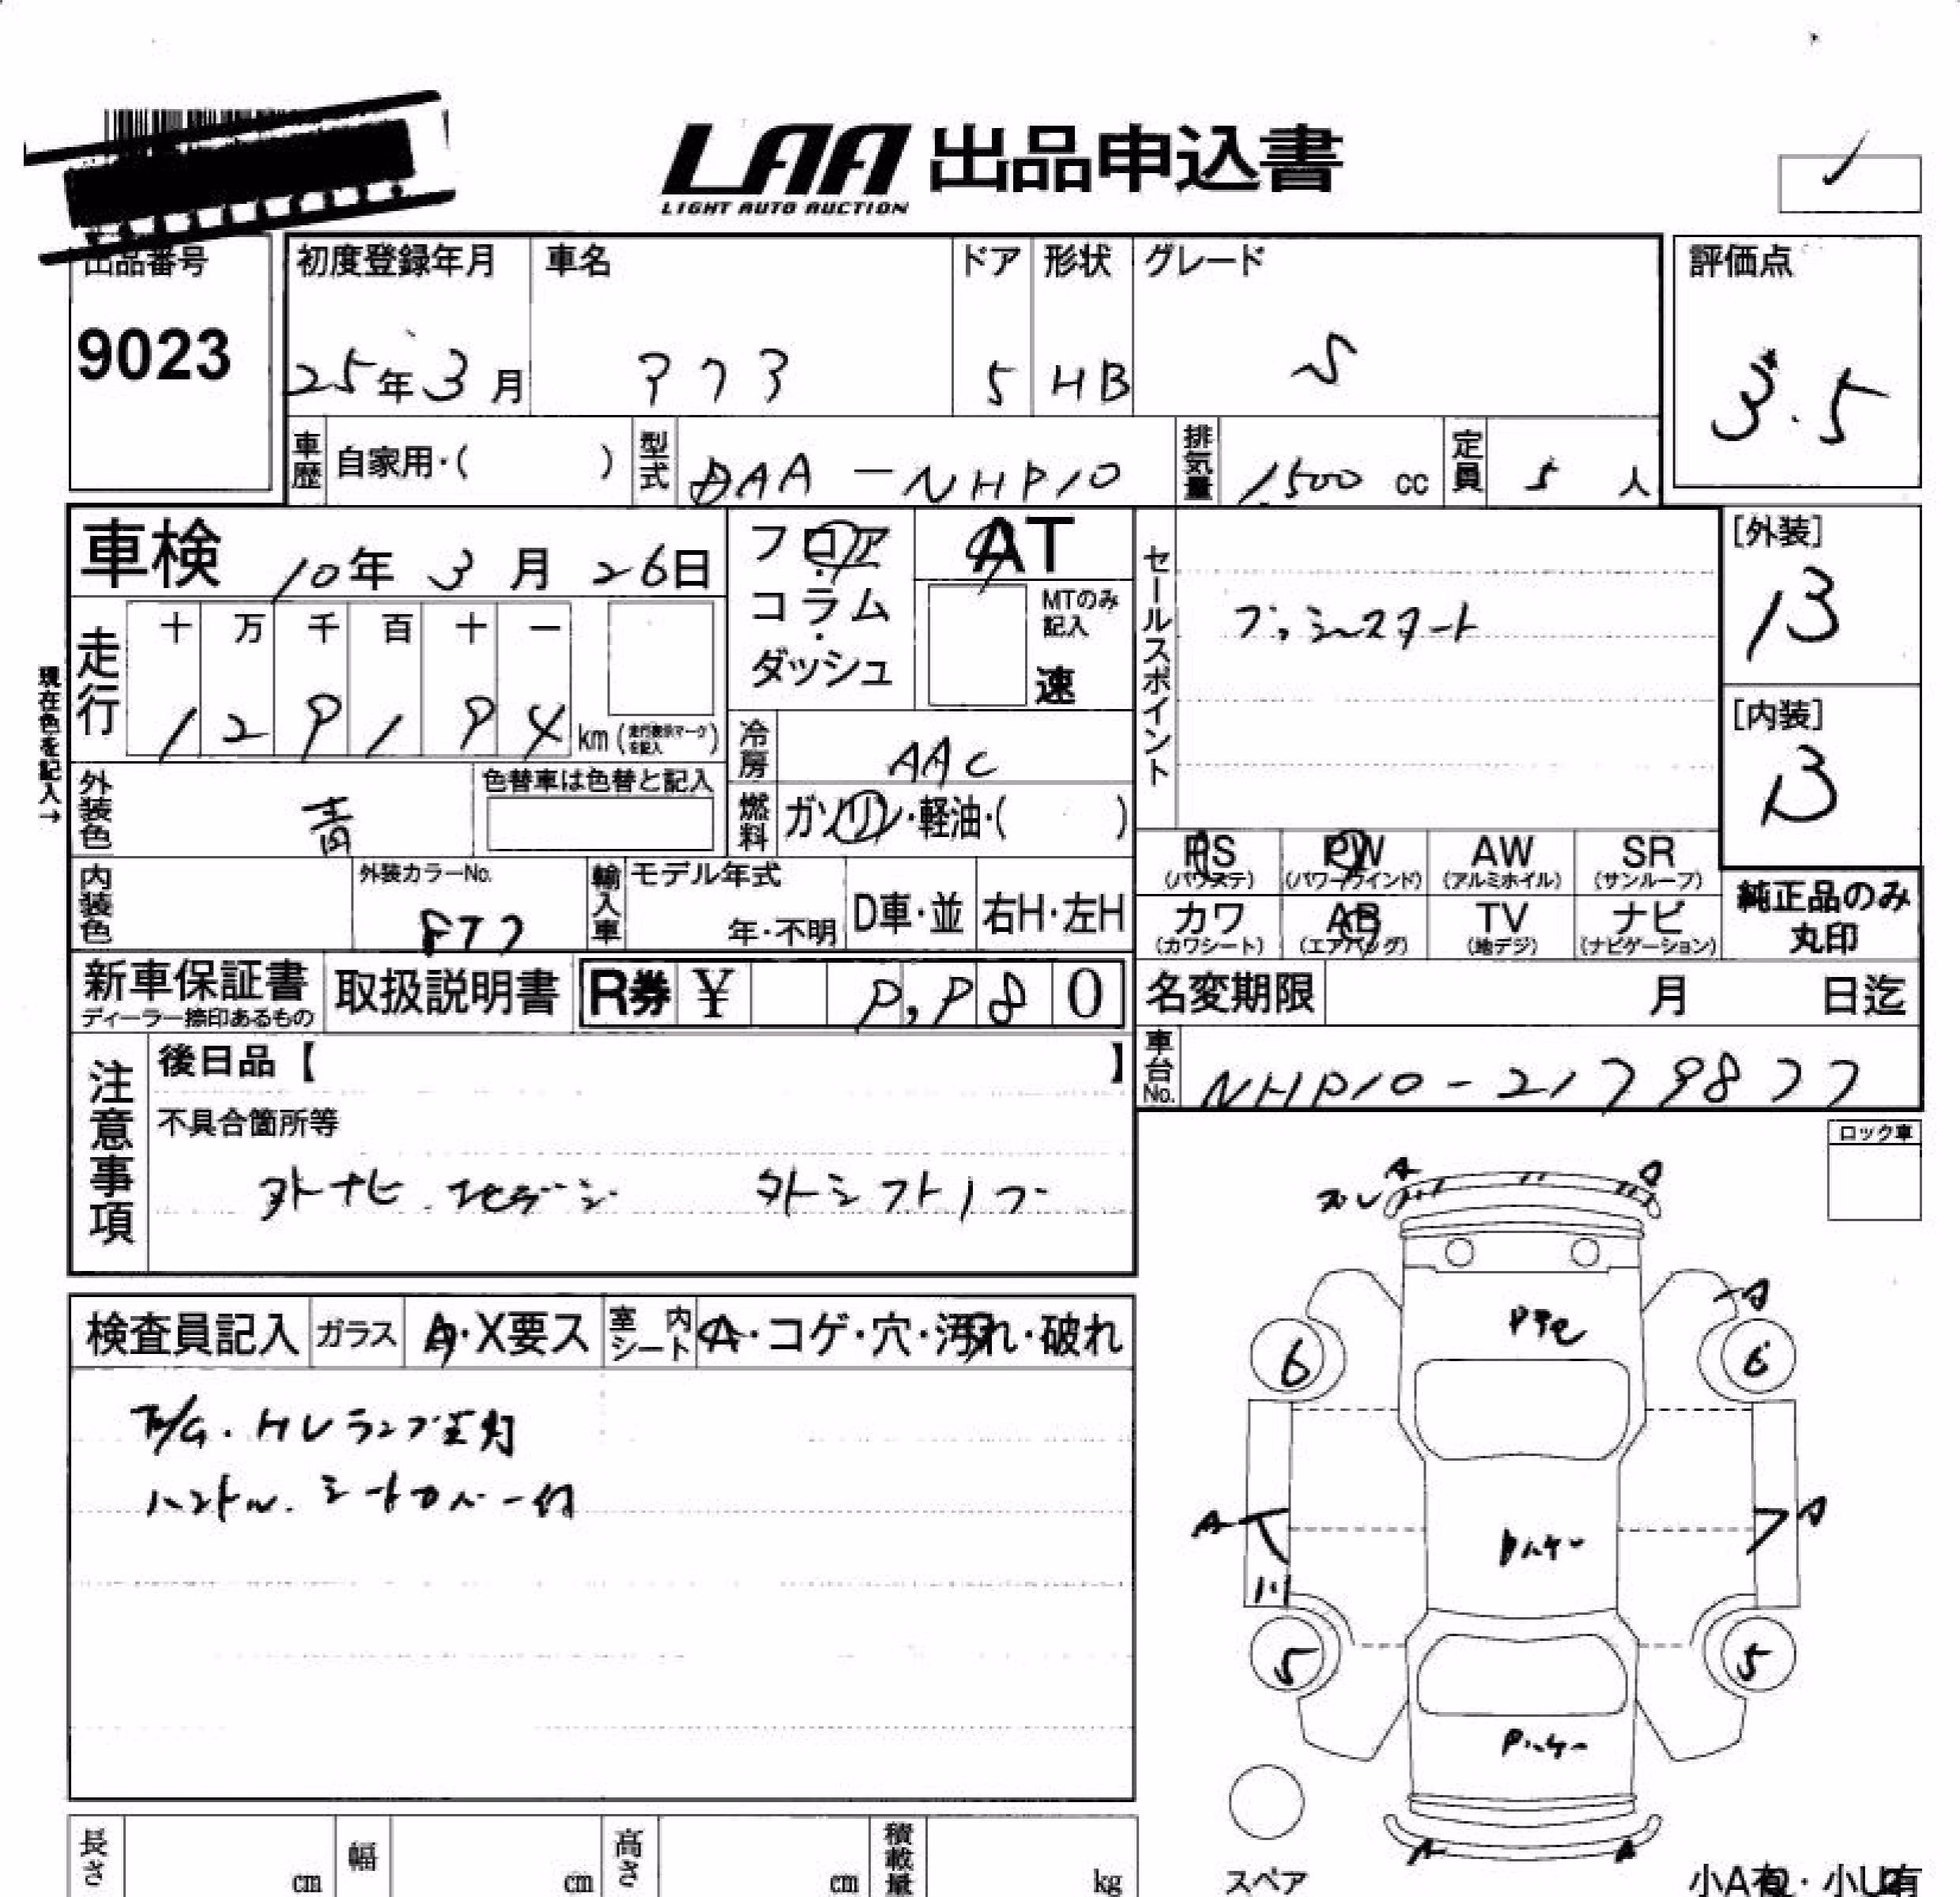 LAA 出品申込書
LIGHT AUTO AUCTION
出品番号
9023
初度登録年月
25年3月
車名
アクア
ドア
5
形状
HB
グレード
S
評価点
3.5
車歴
自家用・( )
型式
DAA-NHP10
排気量
1,500 cc
定員
5 人
車検 10年 3月 26日
フロア・コラム・ダッシュ
AT
MTのみ記入
速
セールスポイント
プッシュスタート
[外装]
B
[内装]
B
現在色を記入→
走行
十 万 千 百 十 一
1 2 9 1 9 4 km (走行表示マークを記入)
冷房
AAC
燃料
ガソリン・軽油・( )
外装色
青
色替車は色替と記入
内装色
外装カラーNo.
8T7
輸入車
モデル年式
年・不明
D車・並
右H・左H
PS
(パワステ)
PW
(パワーウインド)
AW
(アルミホイル)
SR
(サンルーフ)
カワ
(カワシート)
AB
(エアバッグ)
TV
(地デジ)
ナビ
(ナビゲーション)
純正品のみ丸印
新車保証書
ディーラー捺印あるもの
取扱説明書
R券 ¥ 9,980
名変期限 月 日迄
車台No.
NHP10-2179877
注意事項
後日品【 】
不具合箇所等
外ナビ.地デジ 外シフトノブ
ロック車
検査員記入
ガラス
A・X要ス
室内シート
A・コゲ・穴・汚れ・破れ
F/G.HLランプ点灯
ハンドル.シートカバー付
ズレ
A
A
A
6
6
A
A
5
5
A
A
スペア
小A有・小U有
長さ cm
幅 cm
高さ cm
積載量 kg